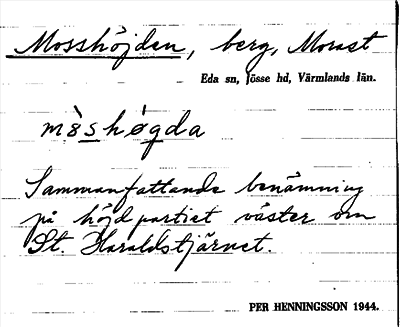 Mosshöjden, berg, Morast
Eda sn, Jösse hd, Värmlands län.
mò̀shø̀gda
Sammanfattande benämning
på höjdpartiet väster om
St. Haraldstjärnet.
PER HENNINGSSON 1944.